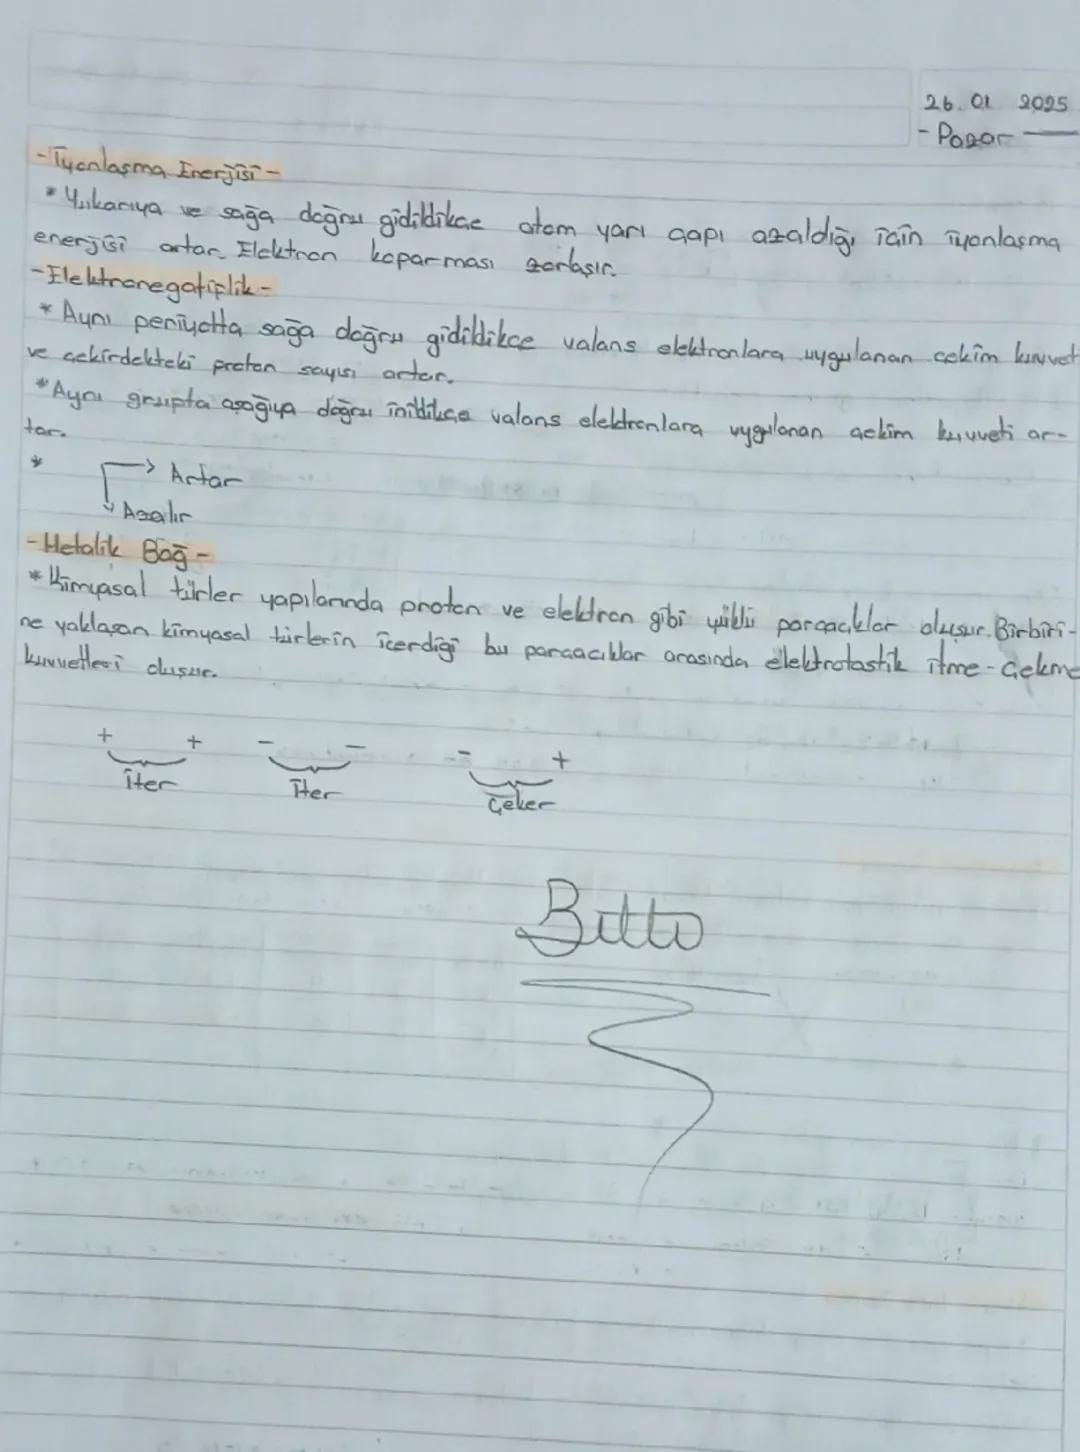 26.01 2025
- Pazar
- İyonlaşma Enerjisi -
* Yukarıya ve sağa doğru gidildikçe atom yarı çapı azaldığı için iyonlaşma
enerjisi artar. Elektron koparması zorlaşır.
- Elektronegatiflik -
* Aynı periyotta sağa doğru gidildikçe valans elektronlara uygulanan çekim kuvvet
ve çekirdekteki proton sayısı artar.
* Aynı grupta aşağıya doğru inildikçe valans elektronlara uygulanan çekim kuvveti ar-
tar.
* → Artar
↓ Azalır
- Metalik Bağ -
* Kimyasal türler yapılarında proton ve elektron gibi yüklü parçacıklar oluşur. Birbiri-
ne yaklaşan kimyasal türlerin içerdiği bu parçacıklar arasında elektrotastik itme - Çekme
kuvvetleri oluşur.
+ + - - - +
iter iter Çeker
Bitti